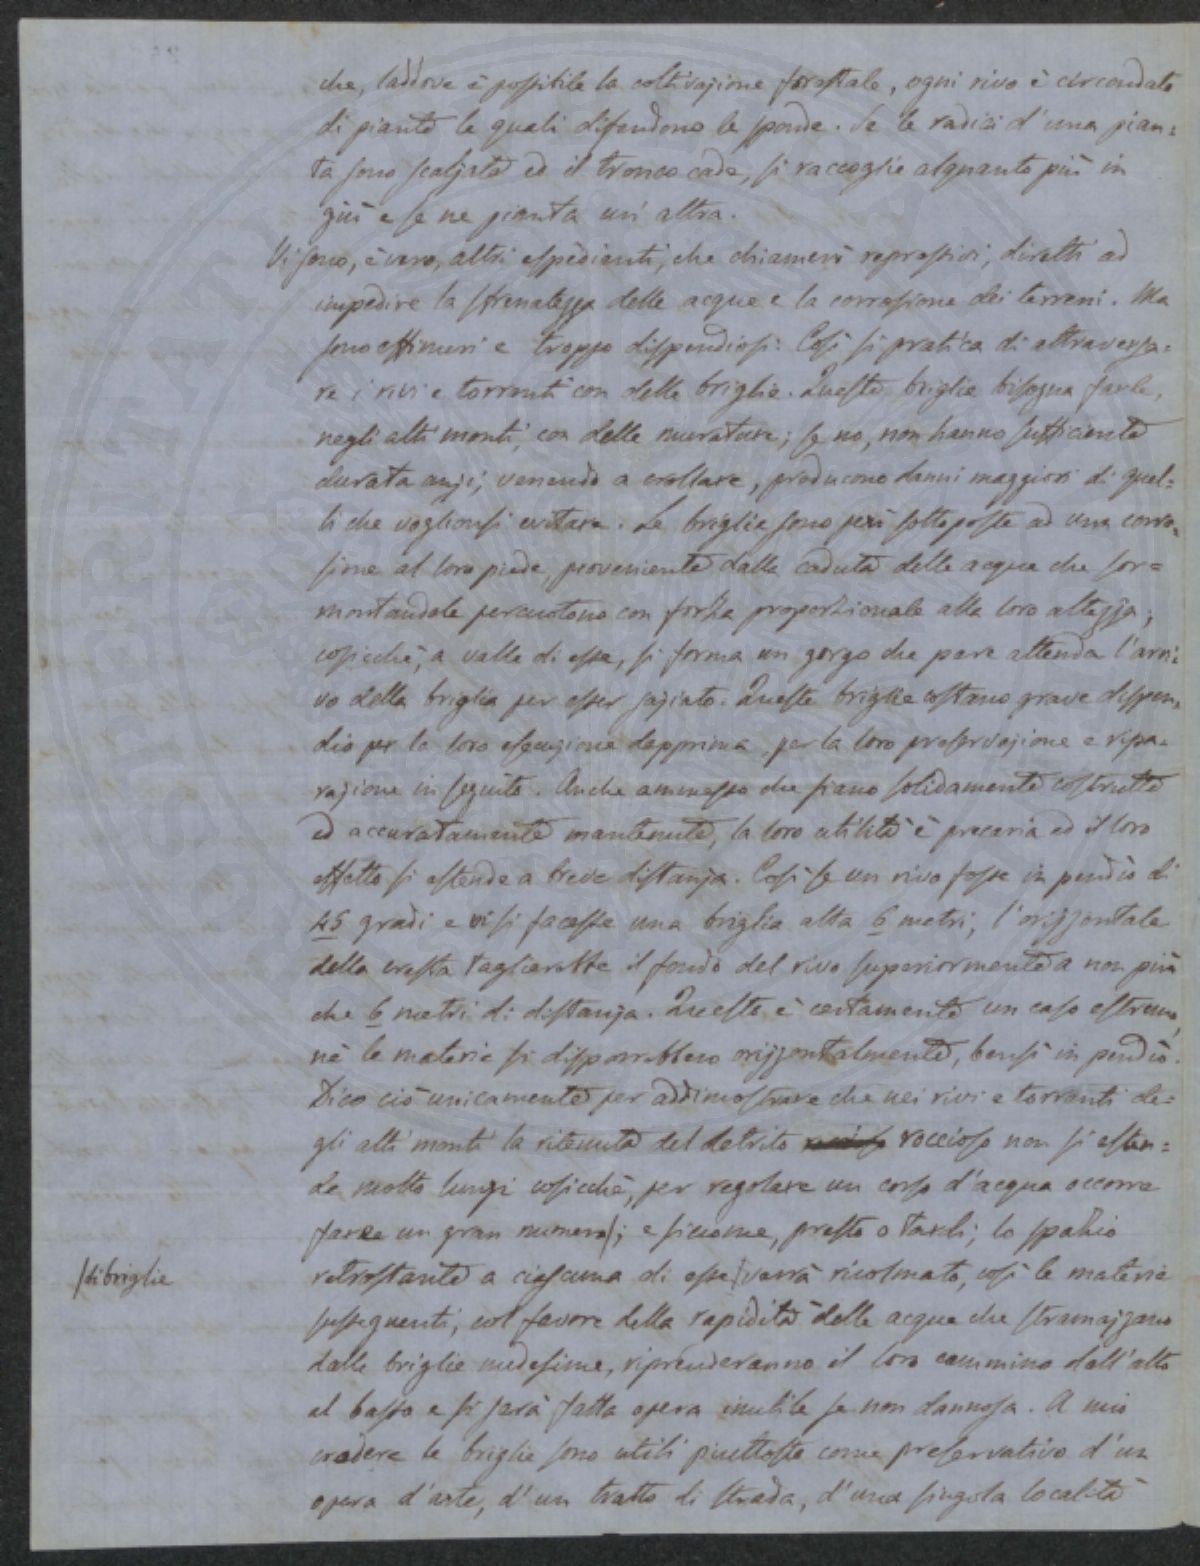 che, laddove è possibile la coltivazione forestale, ogni rivo è circondato
di piante le quali difendono le sponde. Se le radici d'una pian=
ta sono scalzate ed il tronco cade, si raccoglie alquanto più in
giù e se ne pianta un'altra.
Vi sono, è vero, altri espedienti, che chiamerò repressivi, diretti ad
impedire la sfrenatezza delle acque e la corrosione dei terreni. Ma
sono effimeri e troppo dispendiosi. Così si pratica di attraversa=
re i rivi e torrenti con delle briglie. Queste briglie bisogna farle,
negli alti monti, con delle murature; se no, non hanno sufficiente
durata anzi, venendo a crollare, producono danni maggiori di quel=
li che voglionsi evitare. Le briglie sono però sottoposte ad una corro=
sione al loro piede, proveniente dalla caduta delle acque che sor=
montandole percuotono con forza proporzionale alla loro altezza,
cosicchè, a valle di esse, si forma un gorgo che pare attenda l'arri=
vo della briglia per esser saziato. Queste briglie costano grave dispen=
dio per la loro esecuzione dapprima, per la loro preservazione e ripa=
razione in seguito. Anche ammesso che siano solidamente costrutte
ed accuratamente mantenute, la loro utilità è precaria ed il loro
effetto si estende a breve distanza. Così se un rivo fosse in pendio di
45 gradi e vi si facesse una briglia alta 6 metri, l'orizzontale
della cresta taglierebbe il fondo del rivo superiormente a non più
che 6 metri di distanza. Questo è certamente un caso estremo,
nè le materie si disporrebbero orizzontalmente, bensì in pendio.
Dico ciò unicamente per addimostrare che nei rivi e torrenti de=
gli alti monti la ritenuta del detrito roccioso non si esten=
de molto lungi cosicchè, per regolare un corso d'acqua occorre
farne un gran numero/; e siccome, presto o tardi, lo spazio
/di briglie
retrostante a ciascuna di esse verrà ricolmato, così le materie
susseguenti, col favore della rapidità delle acque che stramazzano
dalle briglie medesime, riprenderanno il loro cammino dall'alto
al basso e si sarà fatta opera inutile se non dannosa. A mio
credere le briglie sono utili piuttosto come preservativo d'un
opera d'arte, d'un tratto di strada, d'una singola località